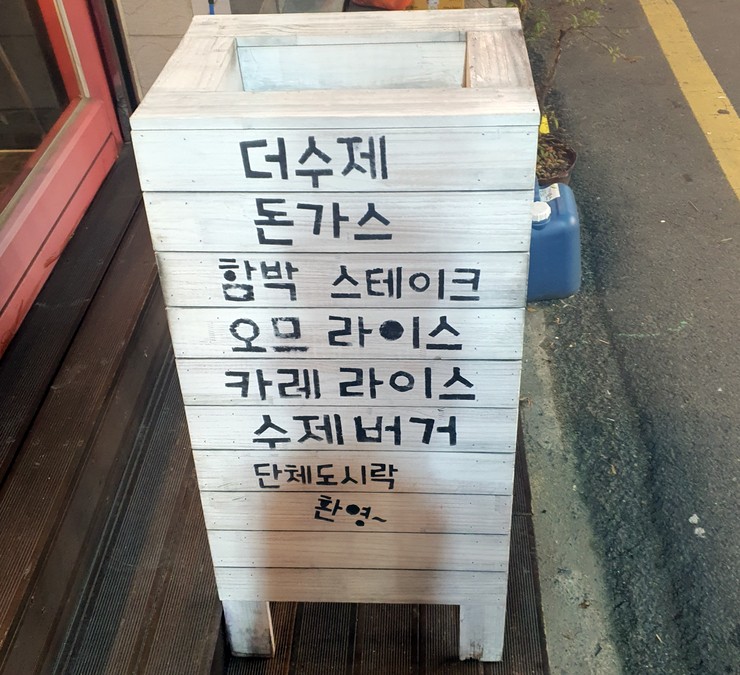 더수제
돈가스
함박 스테이크
오므 라이스
카레 라이스
수제버거
단체도시락
환영~